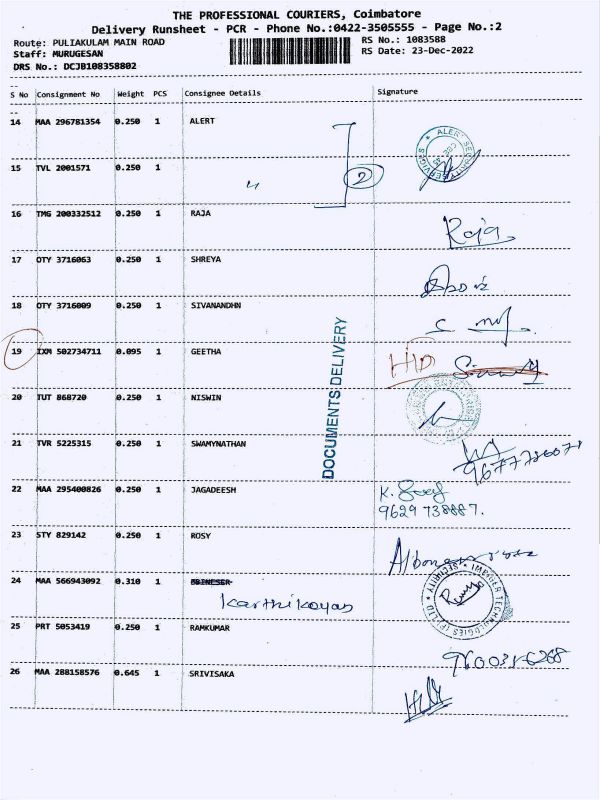 THE PROFESSIONAL COURIERS, Coimbatore
Delivery Runsheet - PCR - Phone No.:0422-3505555 - Page No.:2
Route: PULIAKULAM MAIN ROAD
RS No.: 1083588
Staff: MURUGESAN
RS Date: 23-Dec-2022
DRS No.: DCJB108358802
S No Consignment No Weight PCS Consignee Details Signature
14 MAA 296781354 0.250 1 ALERT
15 TVL 2001571 0.250 1 〃
2
16 TMG 200332512 0.250 1 RAJA Raja
17 OTY 3716063 0.250 1 SHREYA
18 OTY 3716009 0.250 1 SIVANANDHN
19 IXM 502734711 0.095 1 GEETHA
20 TUT 868720 0.250 1 NISWIN
21 TVR 5225315 0.250 1 SWAMYNATHAN
22 MAA 295400826 0.250 1 JAGADEESH
9629738887.
23 STY 829142 0.250 1 ROSY
24 MAA 566943092 0.310 1 EBINESER
Karthikeyan
25 PRT 5053419 0.250 1 RAMKUMAR
26 MAA 288158576 0.645 1 SRIVISAKA
DOCUMENTS DELIVERY